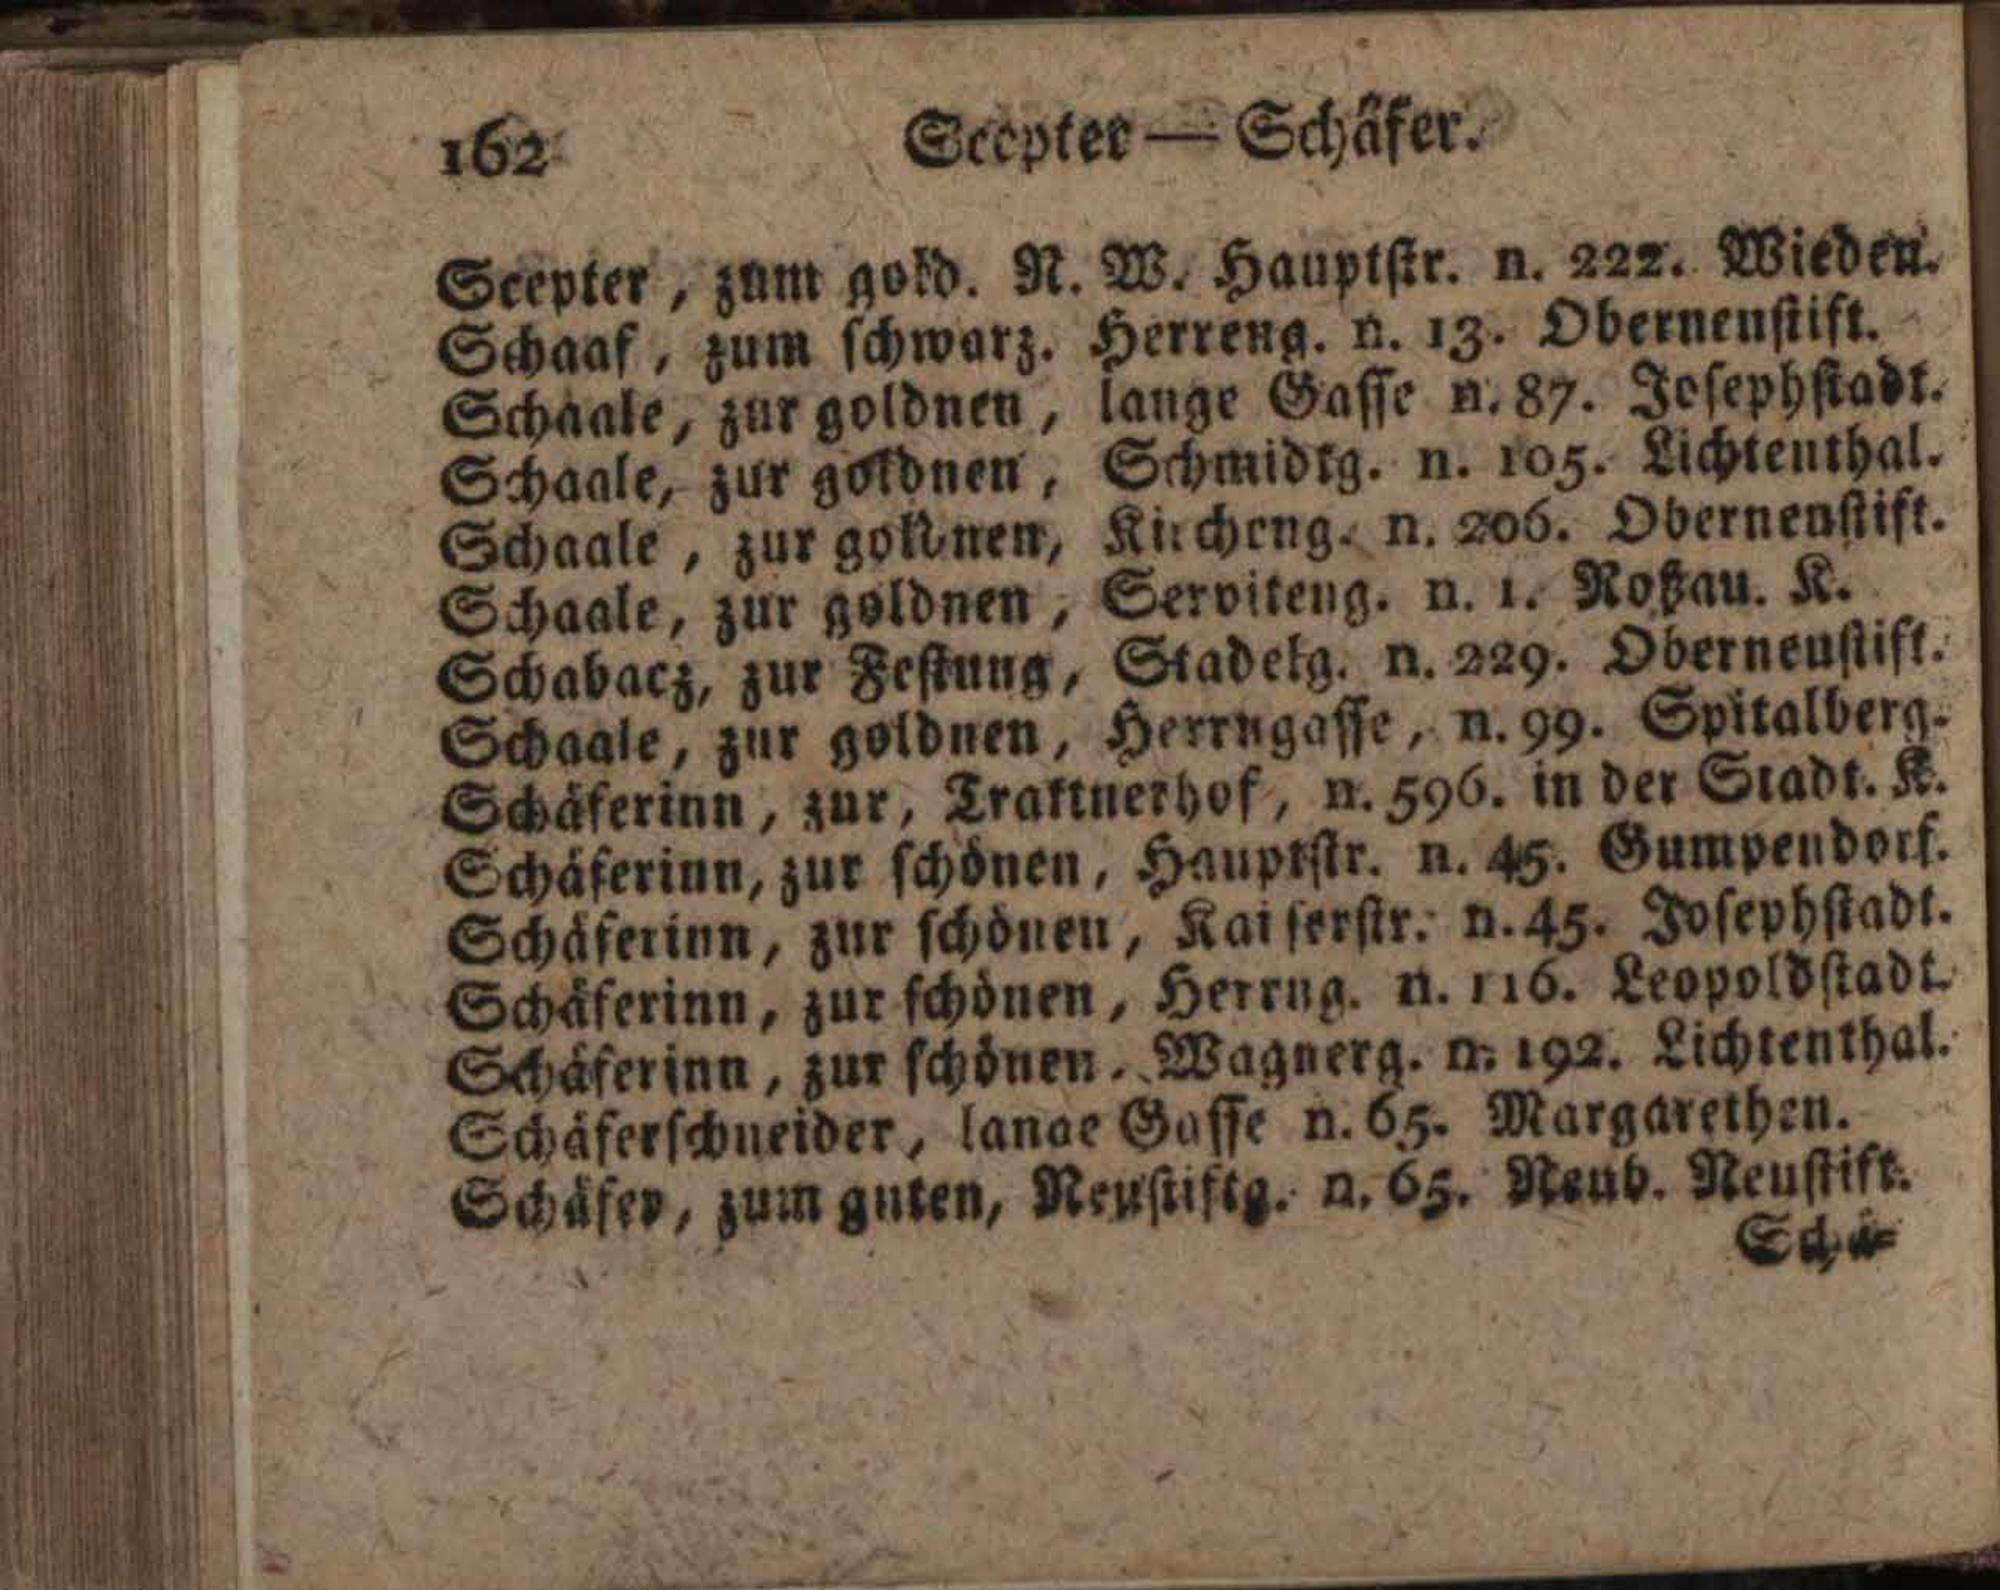 162 Scepter — Schäfer.
Scepter, zum gold. N. W. Hauptstr. n. 222. Wieden.
Schaaf, zum schwarz. Herreng. n. 13. Oberneustift.
Schaale, zur goldnen, lange Gasse n. 87. Josephstadt.
Schaale, zur goldnen, Schmidtg. n. 105. Lichtenthal.
Schaale, zur goldnen, Kircheng. n. 206. Oberneustift.
Schaale, zur goldnen, Serviteng. n. 1. Roßau. K.
Schabacz, zur Festung, Stadelg. n. 229. Oberneustift.
Schaale, zur goldnen, Herrngasse, n. 99. Spitalberg.
Schäferinn, zur, Trattnerhof, n. 596. in der Stadt. K.
Schäferinn, zur schönen, Hauptstr. n. 45. Gumpendorf.
Schäferinn, zur schönen, Kaiserstr. n. 45. Josephstadt.
Schäferinn, zur schönen, Herrng. n. 116. Leopoldstadt.
Schäferinn, zur schönen. Wagnerg. n. 192. Lichtenthal.
Schäferschneider, lange Gasse n. 65. Margarethen.
Schäfer, zum guten, Neustiftg. n. 65. Neub. Neustift.
Schä-